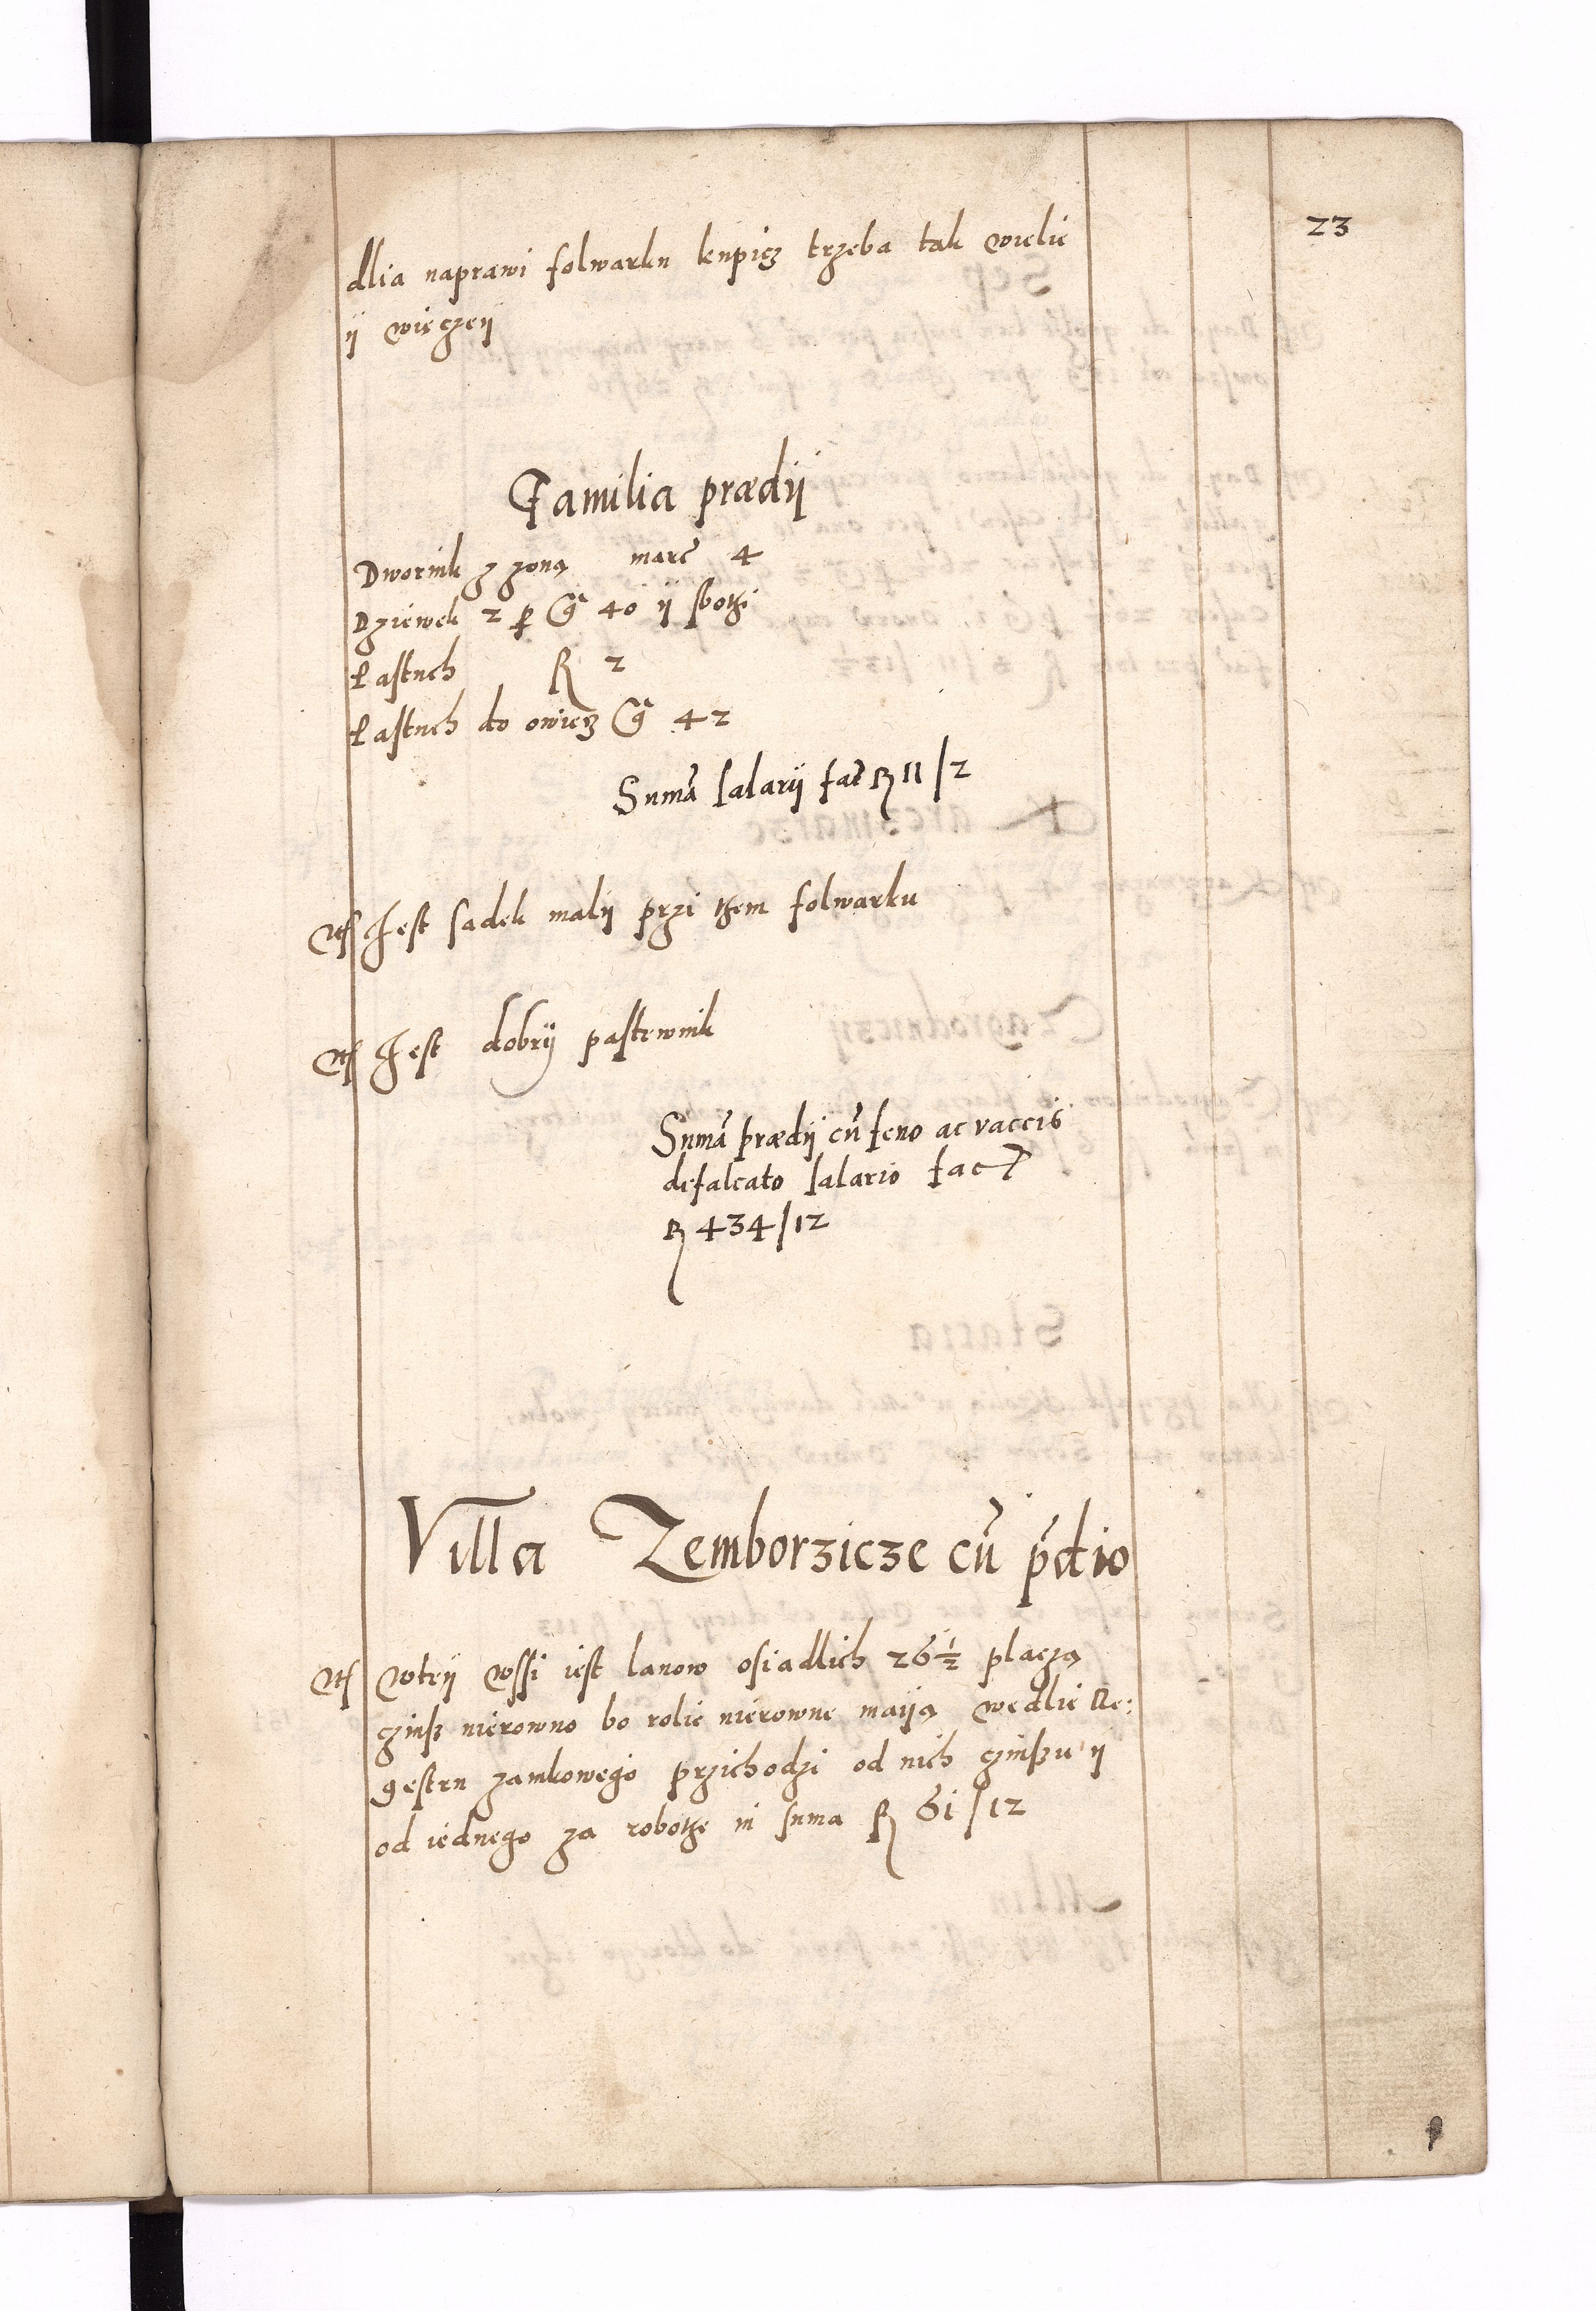 23
dlia naprawi folwarku kupicz trzeba tak wielie
ij wieczeij
Familia prædij
Dwornik z zoną marc 4
Dziewek 2 p Gr 40 ij sbothi
Pastuch R 2
Pastuch do owiecz Gr 42
Suma salarij fac R 11/2
Itē Jest sadek malij przi them folwarku
Itē Jest dobrij pastewnik
Suma prædij cū feno ac vaccis
defalcato salario fac
R 434/12
Villa Zemborzicze cū p̄dio
Itē Wteij Wssi iest lanow osiadlich 26½ placzą
czinsz nierowno bo rolie nierowne maiją wedlie Re:
gestru zamkowego przichodzi od nich czinszu ij
od iednego za robothe in suma R 61/12